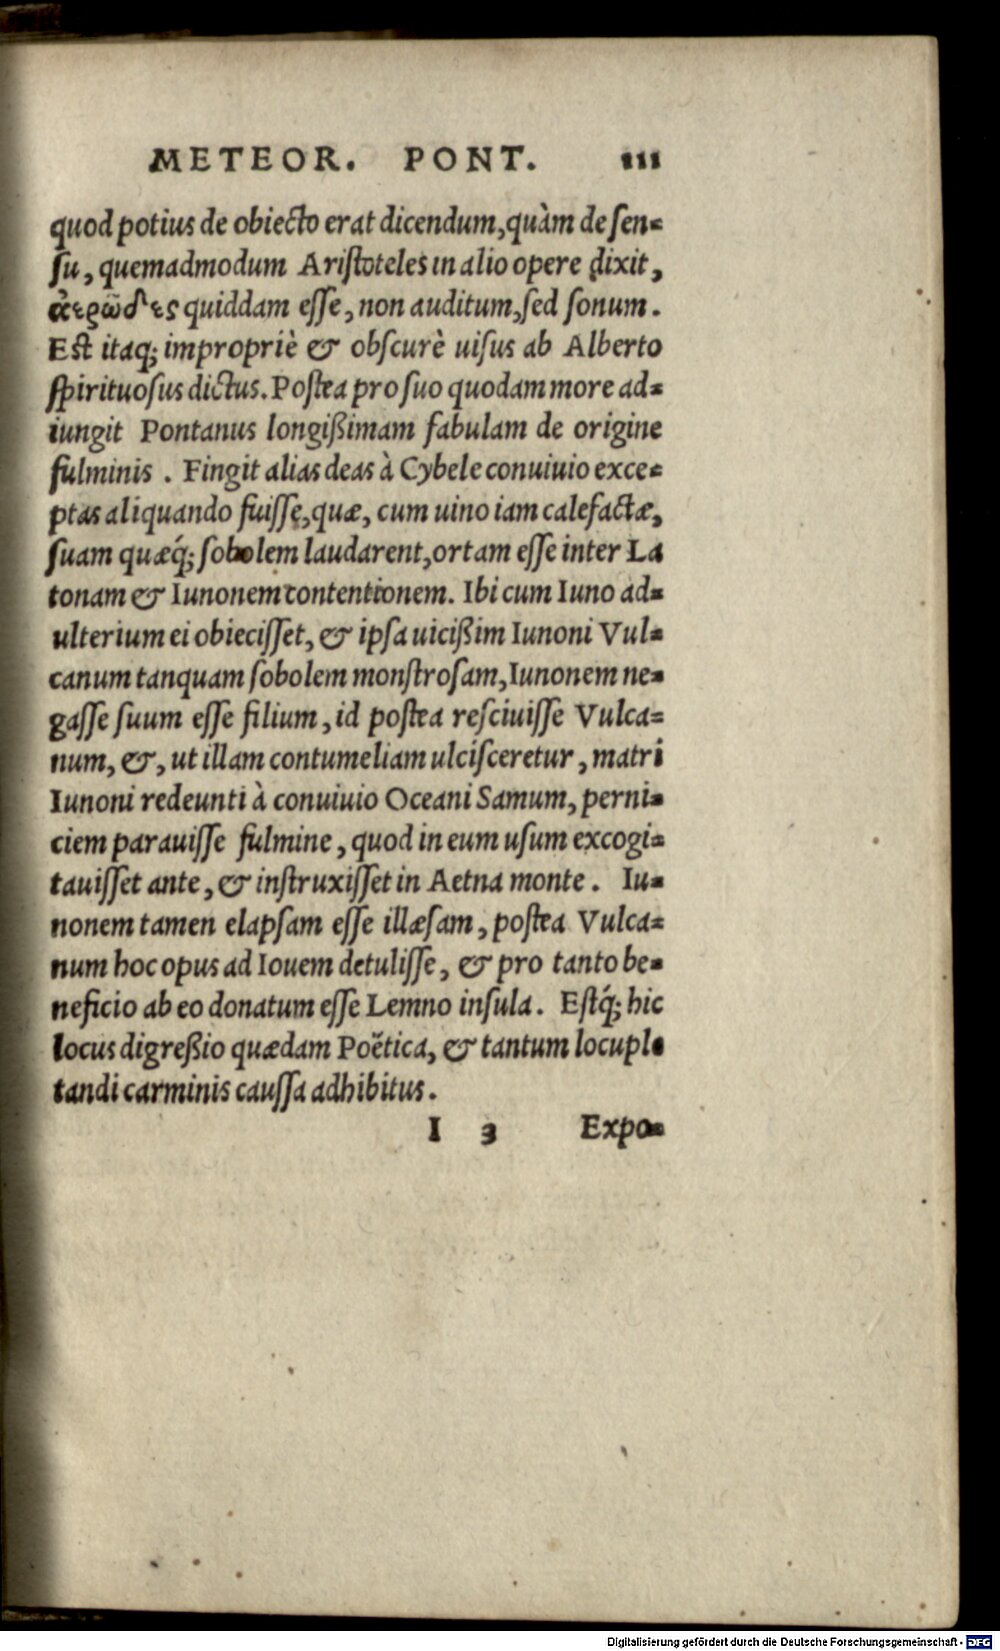 METEOR. PONT. 111
quod potius de obiecto erat dicendum, quàm de sen-
su, quemadmodum Aristoteles in alio opere dixit,
ἀερῶδες quiddam esse, non auditum, sed sonum.
Est itaq; impropriè & obscurè uisus ab Alberto
spirituosus dictus. Postea pro suo quodam more ad-
iungit Pontanus longißimam fabulam de origine
fulminis. Fingit alias deas à Cybele conuiuio exce-
ptas aliquando fuisse, quæ, cum uino iam calefactæ,
suam quæq́; sobolem laudarent, ortam esse inter La
tonam & Iunonem contentionem. Ibi cum Iuno ad-
ulterium ei obiecisset, & ipsa uicißim Iunoni Vul-
canum tanquam sobolem monstrosam, Iunonem ne-
gasse suum esse filium, id postea resciuisse Vulca-
num, &, ut illam contumeliam ulcisceretur, matri
Iunoni redeunti à conuiuio Oceani Samum, perni-
ciem parauisse fulmine, quod in eum usum excogi-
tauisset ante, & instruxisset in Aetna monte. Iu-
nonem tamen elapsam esse illæsam, postea Vulca-
num hoc opus ad Iouem detulisse, & pro tanto be-
neficio ab eo donatum esse Lemno insula. Estq́; hic
locus digreßio quædam Poëtica, & tantum locuple
tandi carminis caussa adhibitus.
I 3 Expo-
Digitalisierung gefördert durch die Deutsche Forschungsgemeinschaft - DFG